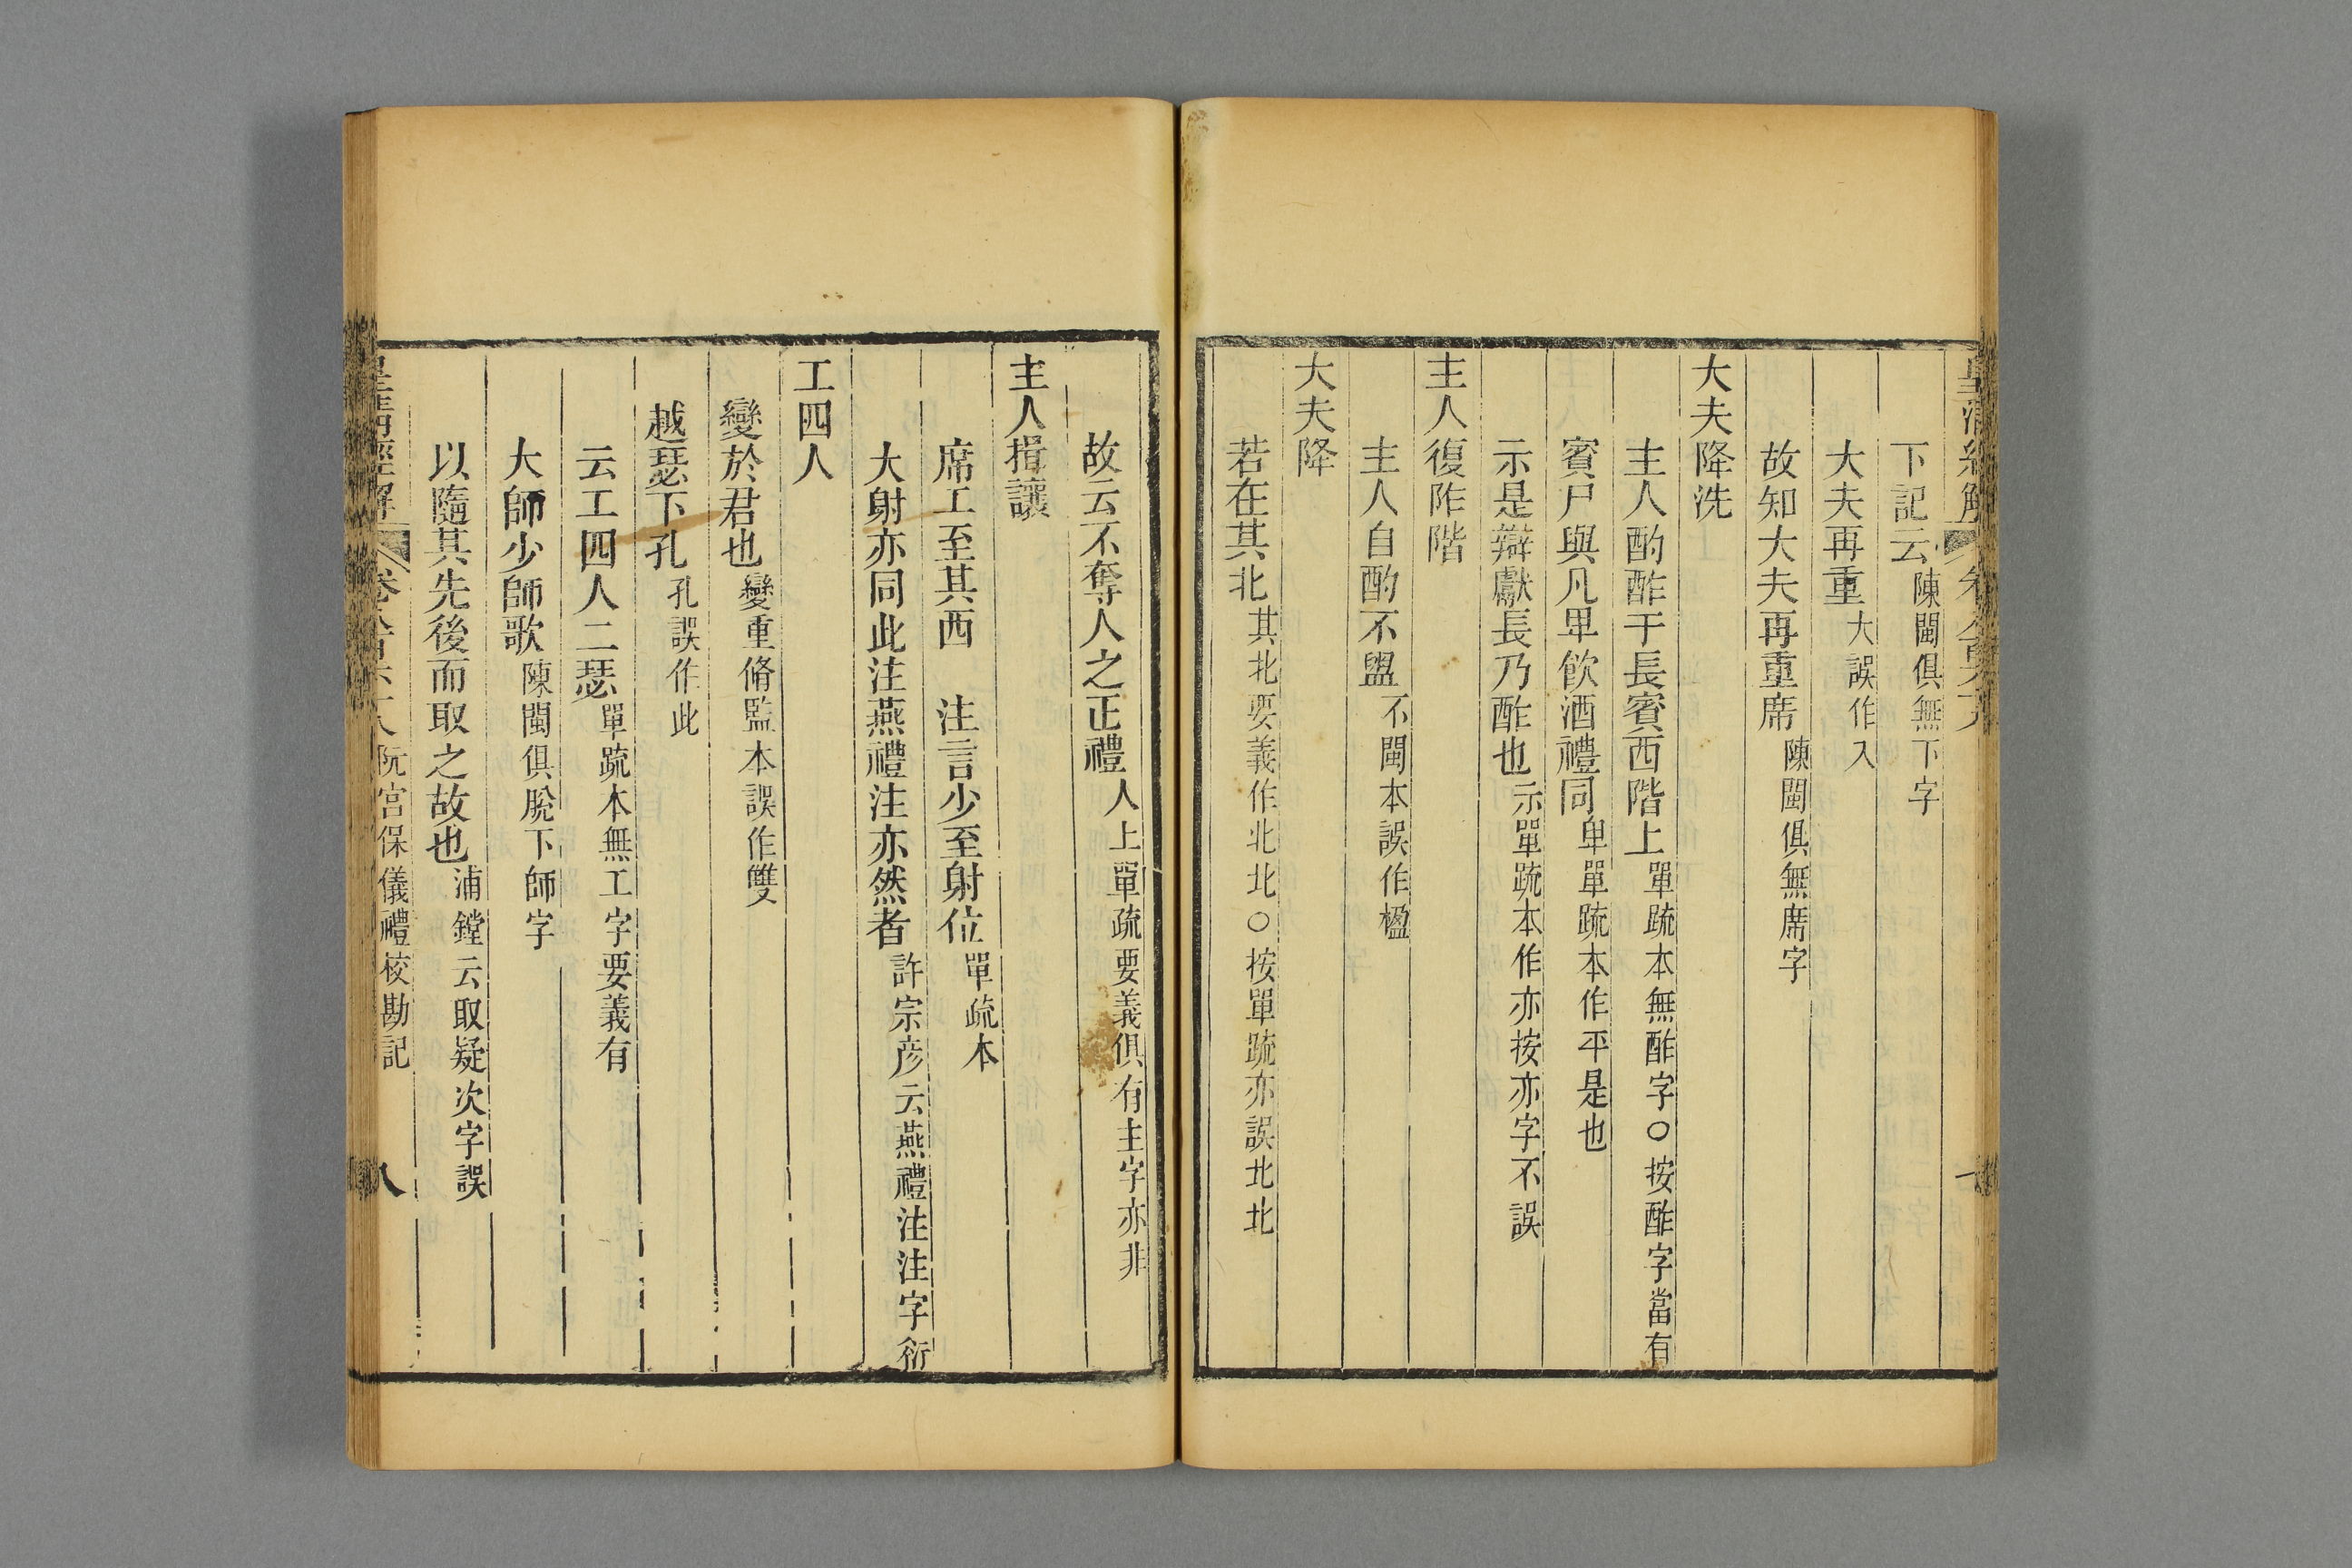 下記云陳閩俱無下字
大夫再重大誤作入
故知大夫再重席陳閩俱無席字
大夫降洗
主人酌酢于長賓西階上單疏本無酢字○按酢字當有
賓尸與凡單飲酒禮同單單疏本作平是也
示是辯獻長乃酢也示單疏本作亦按亦字不誤
主人復阼階
主人自酌不盥不閩本誤作楹
大夫降
若在其北其北要義作北北○按單疏亦誤北北
故云不奪人之正禮人上單疏要義俱有主字亦非
主人揖讓
席工至其西 注言少至射位單疏本
大射亦同此注燕禮注亦然者許宗彥云燕禮注注字衍
工四人
變於君也變重脩監本誤作雙
越瑟下孔孔誤作此
云工四人二瑟單疏本無工字要義有
大師少師歌陳閩俱脫下師字
以隨其先後而取之故也浦鏜云取疑次字誤
皇清經解 阮宮保儀禮校勘記 八